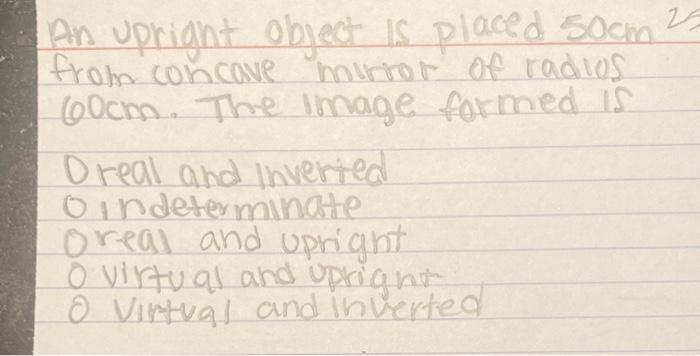 An upright object is placed 50cm
from concave mirror of radios
60cm. The image formed is
O real and inverted
O indeterminate
O real and upright
O virtual and upright
O Virtual and inverted